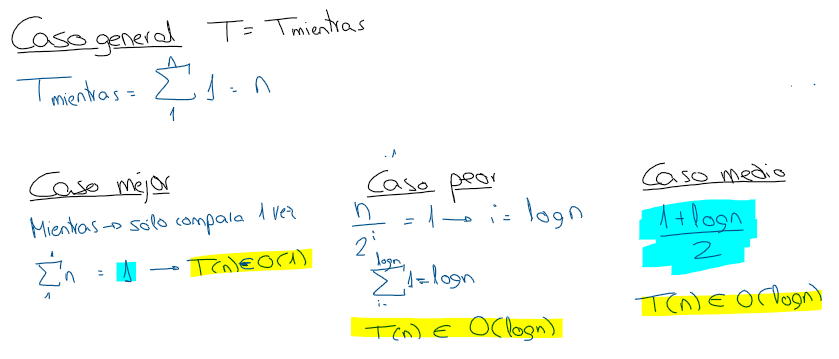 Caso general T = Tmientras
Tmientras = n∑1 1 = n
Caso mejor
Mientras → solo compara 1 vez
1∑1 n = 1 → T(n) ∈ O(1)
Caso peor
n/2^i = 1 → i = logn
logn∑i- 1 = logn
T(n) ∈ O(logn)
Caso medio
1 + logn
2
T(n) ∈ O(logn)